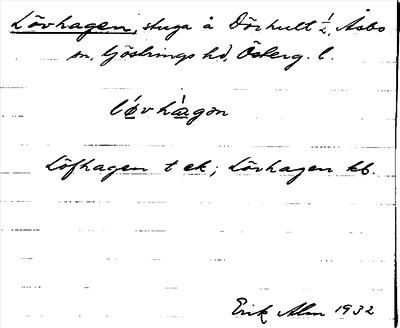 Lövhagen, stuga å Dörhult ½, Åsbo
sn, Göstrings hd, Österg. l.
lǿvhàgən
Löfhagen t ek; Lövhagen kb.
Erik Alm 1932